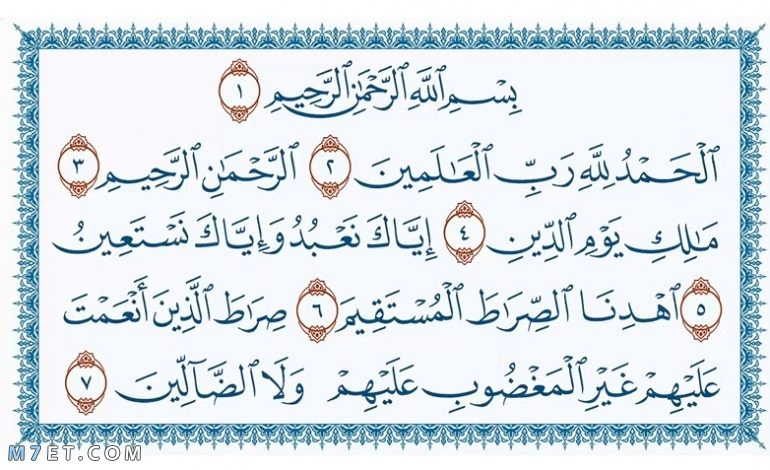 بِسْمِ ٱللَّهِ ٱلرَّحْمَٰنِ ٱلرَّحِيمِ ١
ٱلْحَمْدُ لِلَّهِ رَبِّ ٱلْعَٰلَمِينَ ٢ ٱلرَّحْمَٰنِ ٱلرَّحِيمِ ٣
مَٰلِكِ يَوْمِ ٱلدِّينِ ٤ إِيَّاكَ نَعْبُدُ وَإِيَّاكَ نَسْتَعِينُ
٥ ٱهْدِنَا ٱلصِّرَٰطَ ٱلْمُسْتَقِيمَ ٦ صِرَٰطَ ٱلَّذِينَ أَنْعَمْتَ
عَلَيْهِمْ غَيْرِ ٱلْمَغْضُوبِ عَلَيْهِمْ وَلَا ٱلضَّآلِّينَ ٧
M7ET.COM